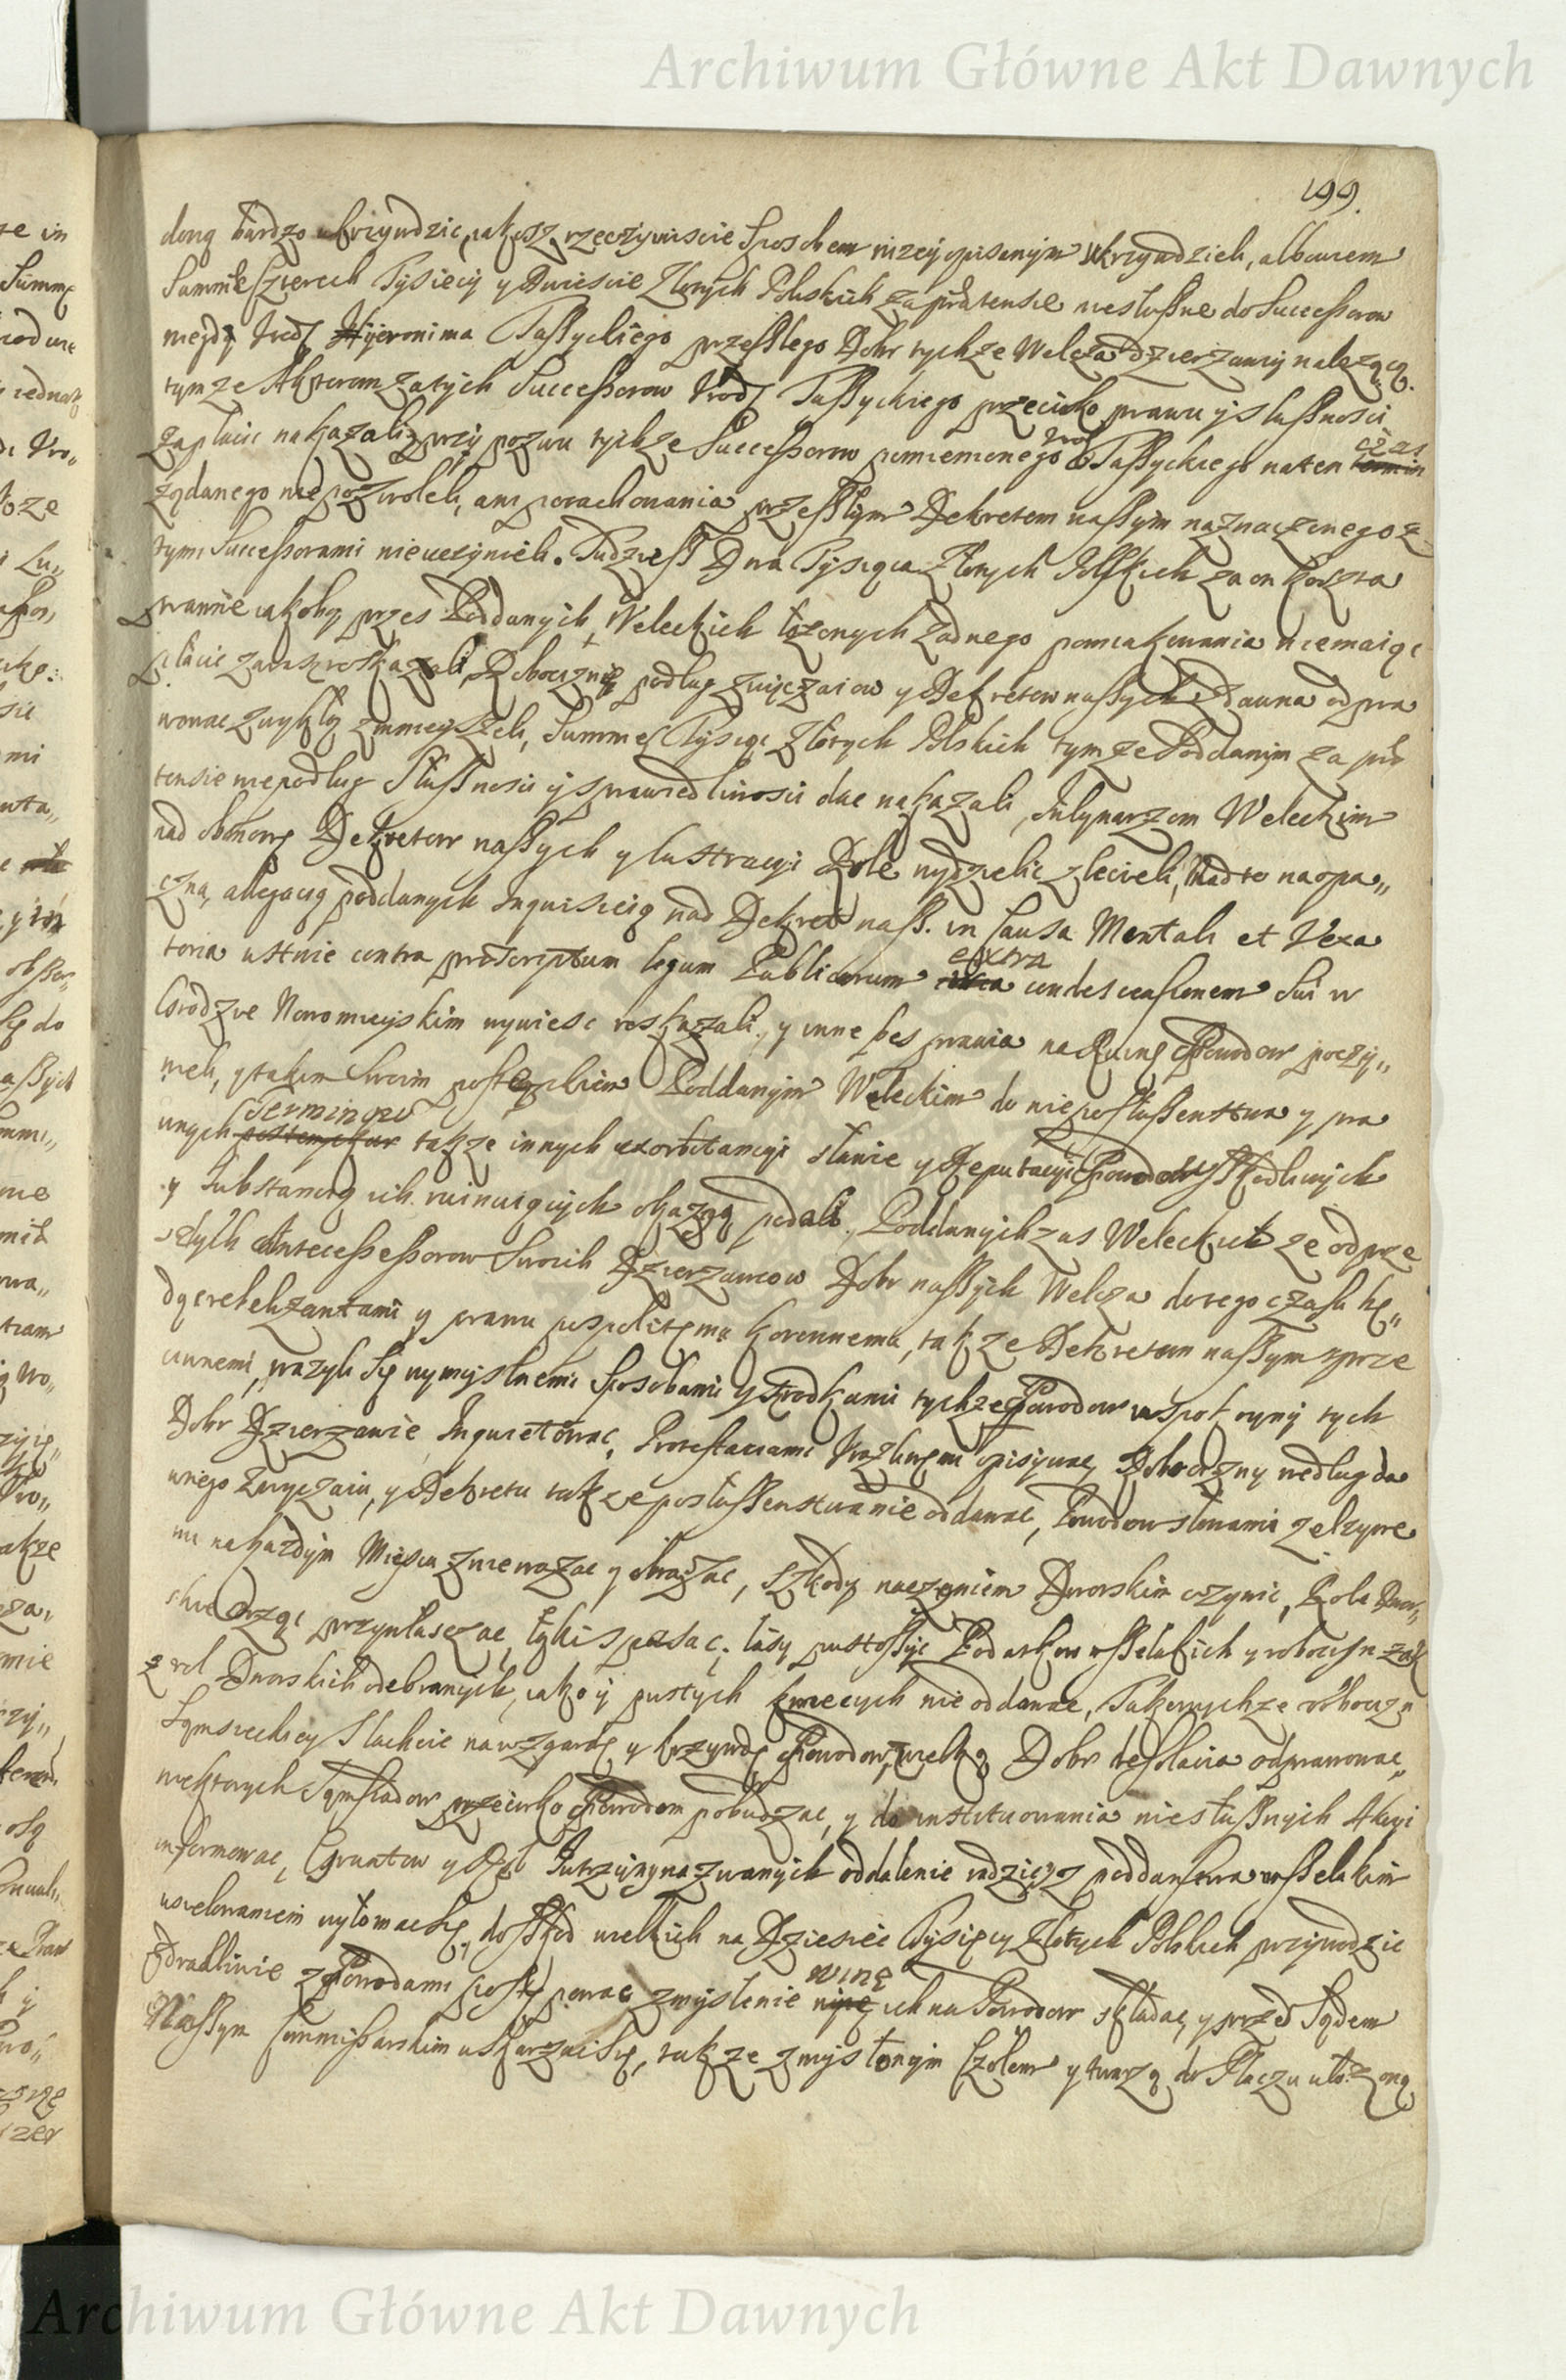 Archiwum Główne Akt Dawnych
199.
doną bardzo ukrzywdzic, iakosz rzeczywiscie sposobem nizey opisanym ukrzywdzieli, albowiem
Summe Czterech Tysiecy y Dwiescie Złotych Polskich za prætensie niesłuszne do Successorow
niegdy Urodz Hyeronima Taszyckiego przeszłego Dobr tychze Welcza dzierzawcy nalezącą
tymze Aktorom za tych Successorow Urodz Taszyckiego przeciwko prawu y słusznosci
zapłacic nakazali, przypozwu tychze Successorow pomienionego Urodz Taszyckiego na ten czas
ządanego nie pozwoleli, ani porachowania przeszłym Dekretem naszym naznaczonego z
tymi Successorami nieuczynieli. Tudziesz Dwa Tysiąca Złotych Polskich za on koszta
prawne iakoby przez Poddanych Weleckich łozonych zadnego pomiakowania niemaiąc
płacic zaraz roskazali, Roboczną podług zwyczaiow y Dekretow naszych zdawna odpra
wowac zwykłą zmnieyszeli, Summe Tysiąc Złotych Polskich tymze Poddanym za præ
tensie niepodług słusznosci y sprawiedliwosci dac nakazali, Młynarzom Weleckim
nad obmowę Dekretow naszych y lustracyi Role wydzielic zlecieli, Nadto na opa„
czną allegacyą poddanych Inquisicią nad Dekret nasz. in Causa Mentali et Vexa
toria ustnie contra præscriptum legum Publicarum extra condescensionem Sui w
Grodzie Nowomieyskim wywiesc roskazali, y inne bes prawia na Ruinę Powodow poczy„
nieli, y takim swoim postępkiem Poddanym Weleckim do nieposłuszenstwa y pra
wnych Terminow także innych exorbitancyi sławie y Reputacyi Powodow szkodliwych
y Substancyą ich ruinuiących okazyą podali. Poddanych zas Weleckich ze od prze
szłych Antecessessorow Swoich Dzierzawcow Dobr naszych Welcza do tego czasu bę„
dąc rebelizantami y prawu pospolitemu koronnemu, takze Dekretom naszym sprze
ciwnemi, wazyli się wymyslnemi sposobami y srodkami tychze Powodow w spokoyny tych
Dobr Dzierzawie Inquietowac, Protestaciami Uraźliwemi opisywac, Roboczny wedlug da
wnego zwyczaiu, y Dekretu takze posłuszenstwa nie oddawac, Powodow słowami zelzywe
mi na kazdym Mieyscu zniewazac y obrazac, szkody naczyniem Dworskim czynic, Role Dwor„
skie orząc przywłasczac, łąki spasac, lasy pustoszyc Podatkow wszelakich y robocizn zas
z rol Dworskich odebranych, iako y pustych kmiecych nie oddawac, Takowychze robocizn
Sąmsiedzkiey Slachcie na wzgardę y krzywdę Powodow, wielką Dobr desolacia odprawowac,
niektorych Sąmsiadow przeciwko Powodom pobudzac, y do instituowania niesłusznych Akcyi
informowac, Gruntow y Rol Jutrzynyna zwanych oddalenie radzic, z poddanstwa wszelakim
usiełowaniem wyłomac się, do szkod wielkich na Dziesiec Tysięcy Złotych Polskich przywodzic
Zdradliwie z Powodami postępowac zmyslenie winę ich na Powodow składac, y przed Sądem
Naszym Commissarskim uskarzac się, takze zmyslonym Czołem y twarzą do Płaczu ułozoną
Archiwum Główne Akt Dawnych